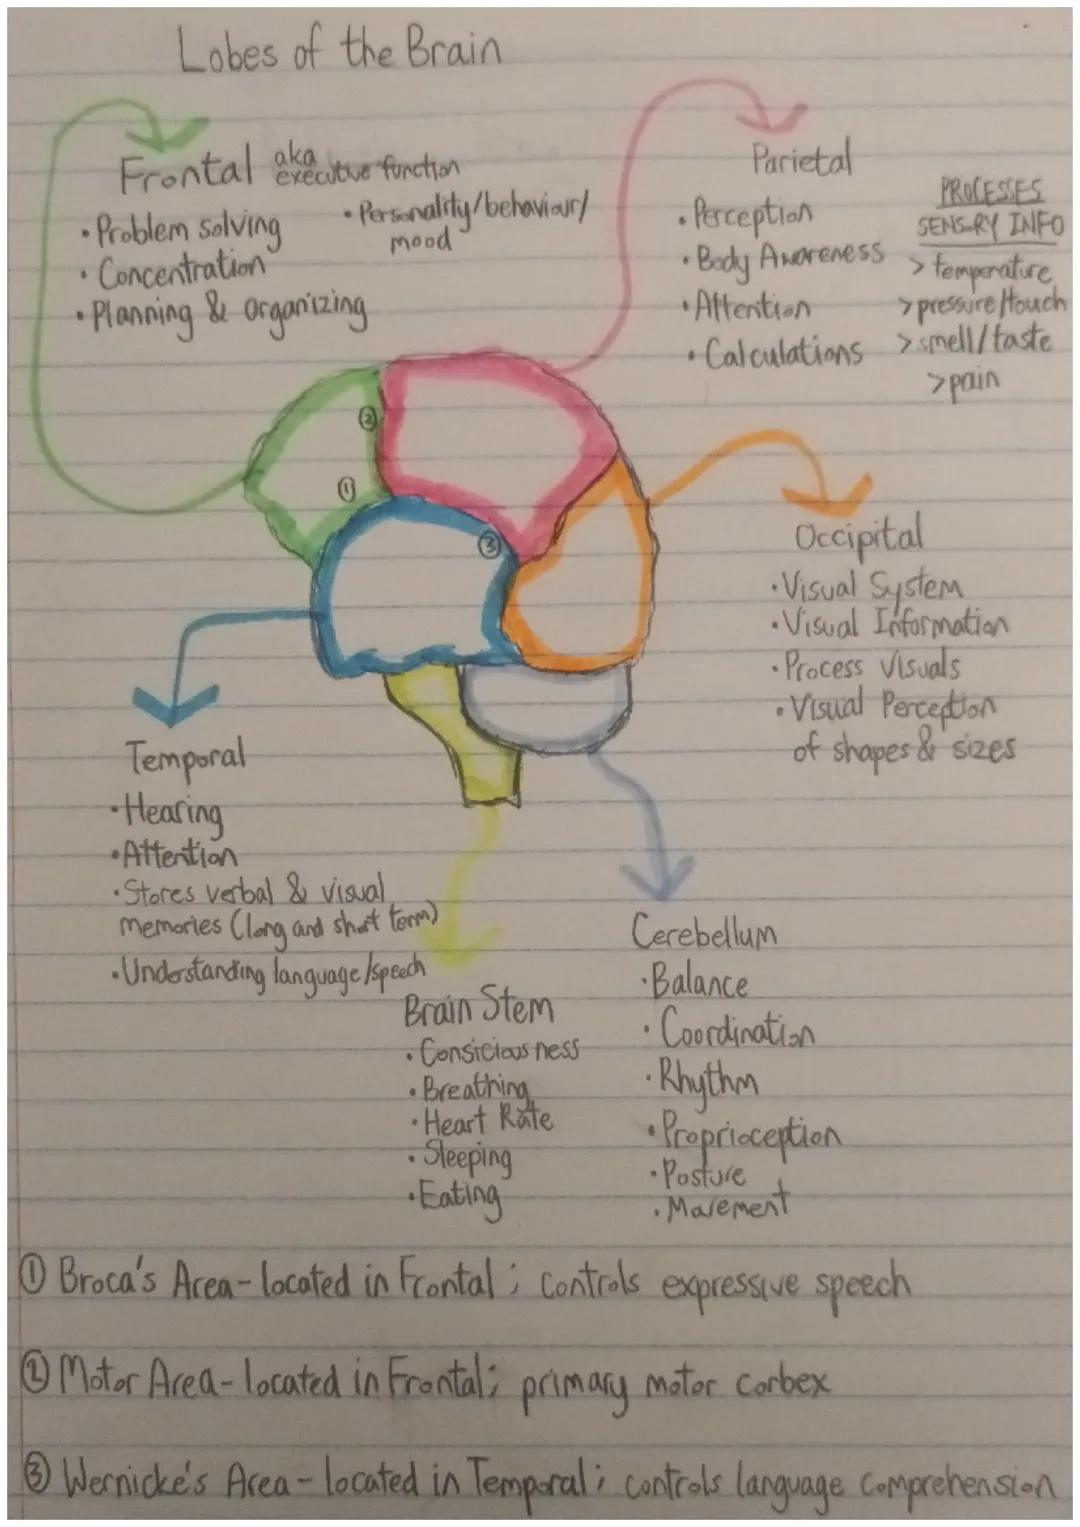 Lobes of the Brain
Frontal aka executive function
• Problem solving
• Concentration
• Planning & organizing
• Personality/behaviour/
mood
Parietal
• Perception
• Body Awareness
• Attention
• Calculations
PROCESSES
SENSORY INFO
> temperature
> pressure/touch
> smell/taste
> pain
②
①
③
Occipital
• Visual System
• Visual Information
• Process Visuals
• Visual Perception
of shapes & sizes
Temporal
• Hearing
• Attention
• Stores verbal & visual
memories (long and short term)
• Understanding language/speech
Brain Stem
• Consiciousness
• Breathing
• Heart Rate
• Sleeping
• Eating
Cerebellum
• Balance
• Coordination
• Rhythm
• Proprioception
• Posture
• Movement
① Broca's Area - located in Frontal; controls expressive speech
② Motor Area - located in Frontal; primary motor corbex
③ Wernicke's Area - located in Temporal; controls language comprehension